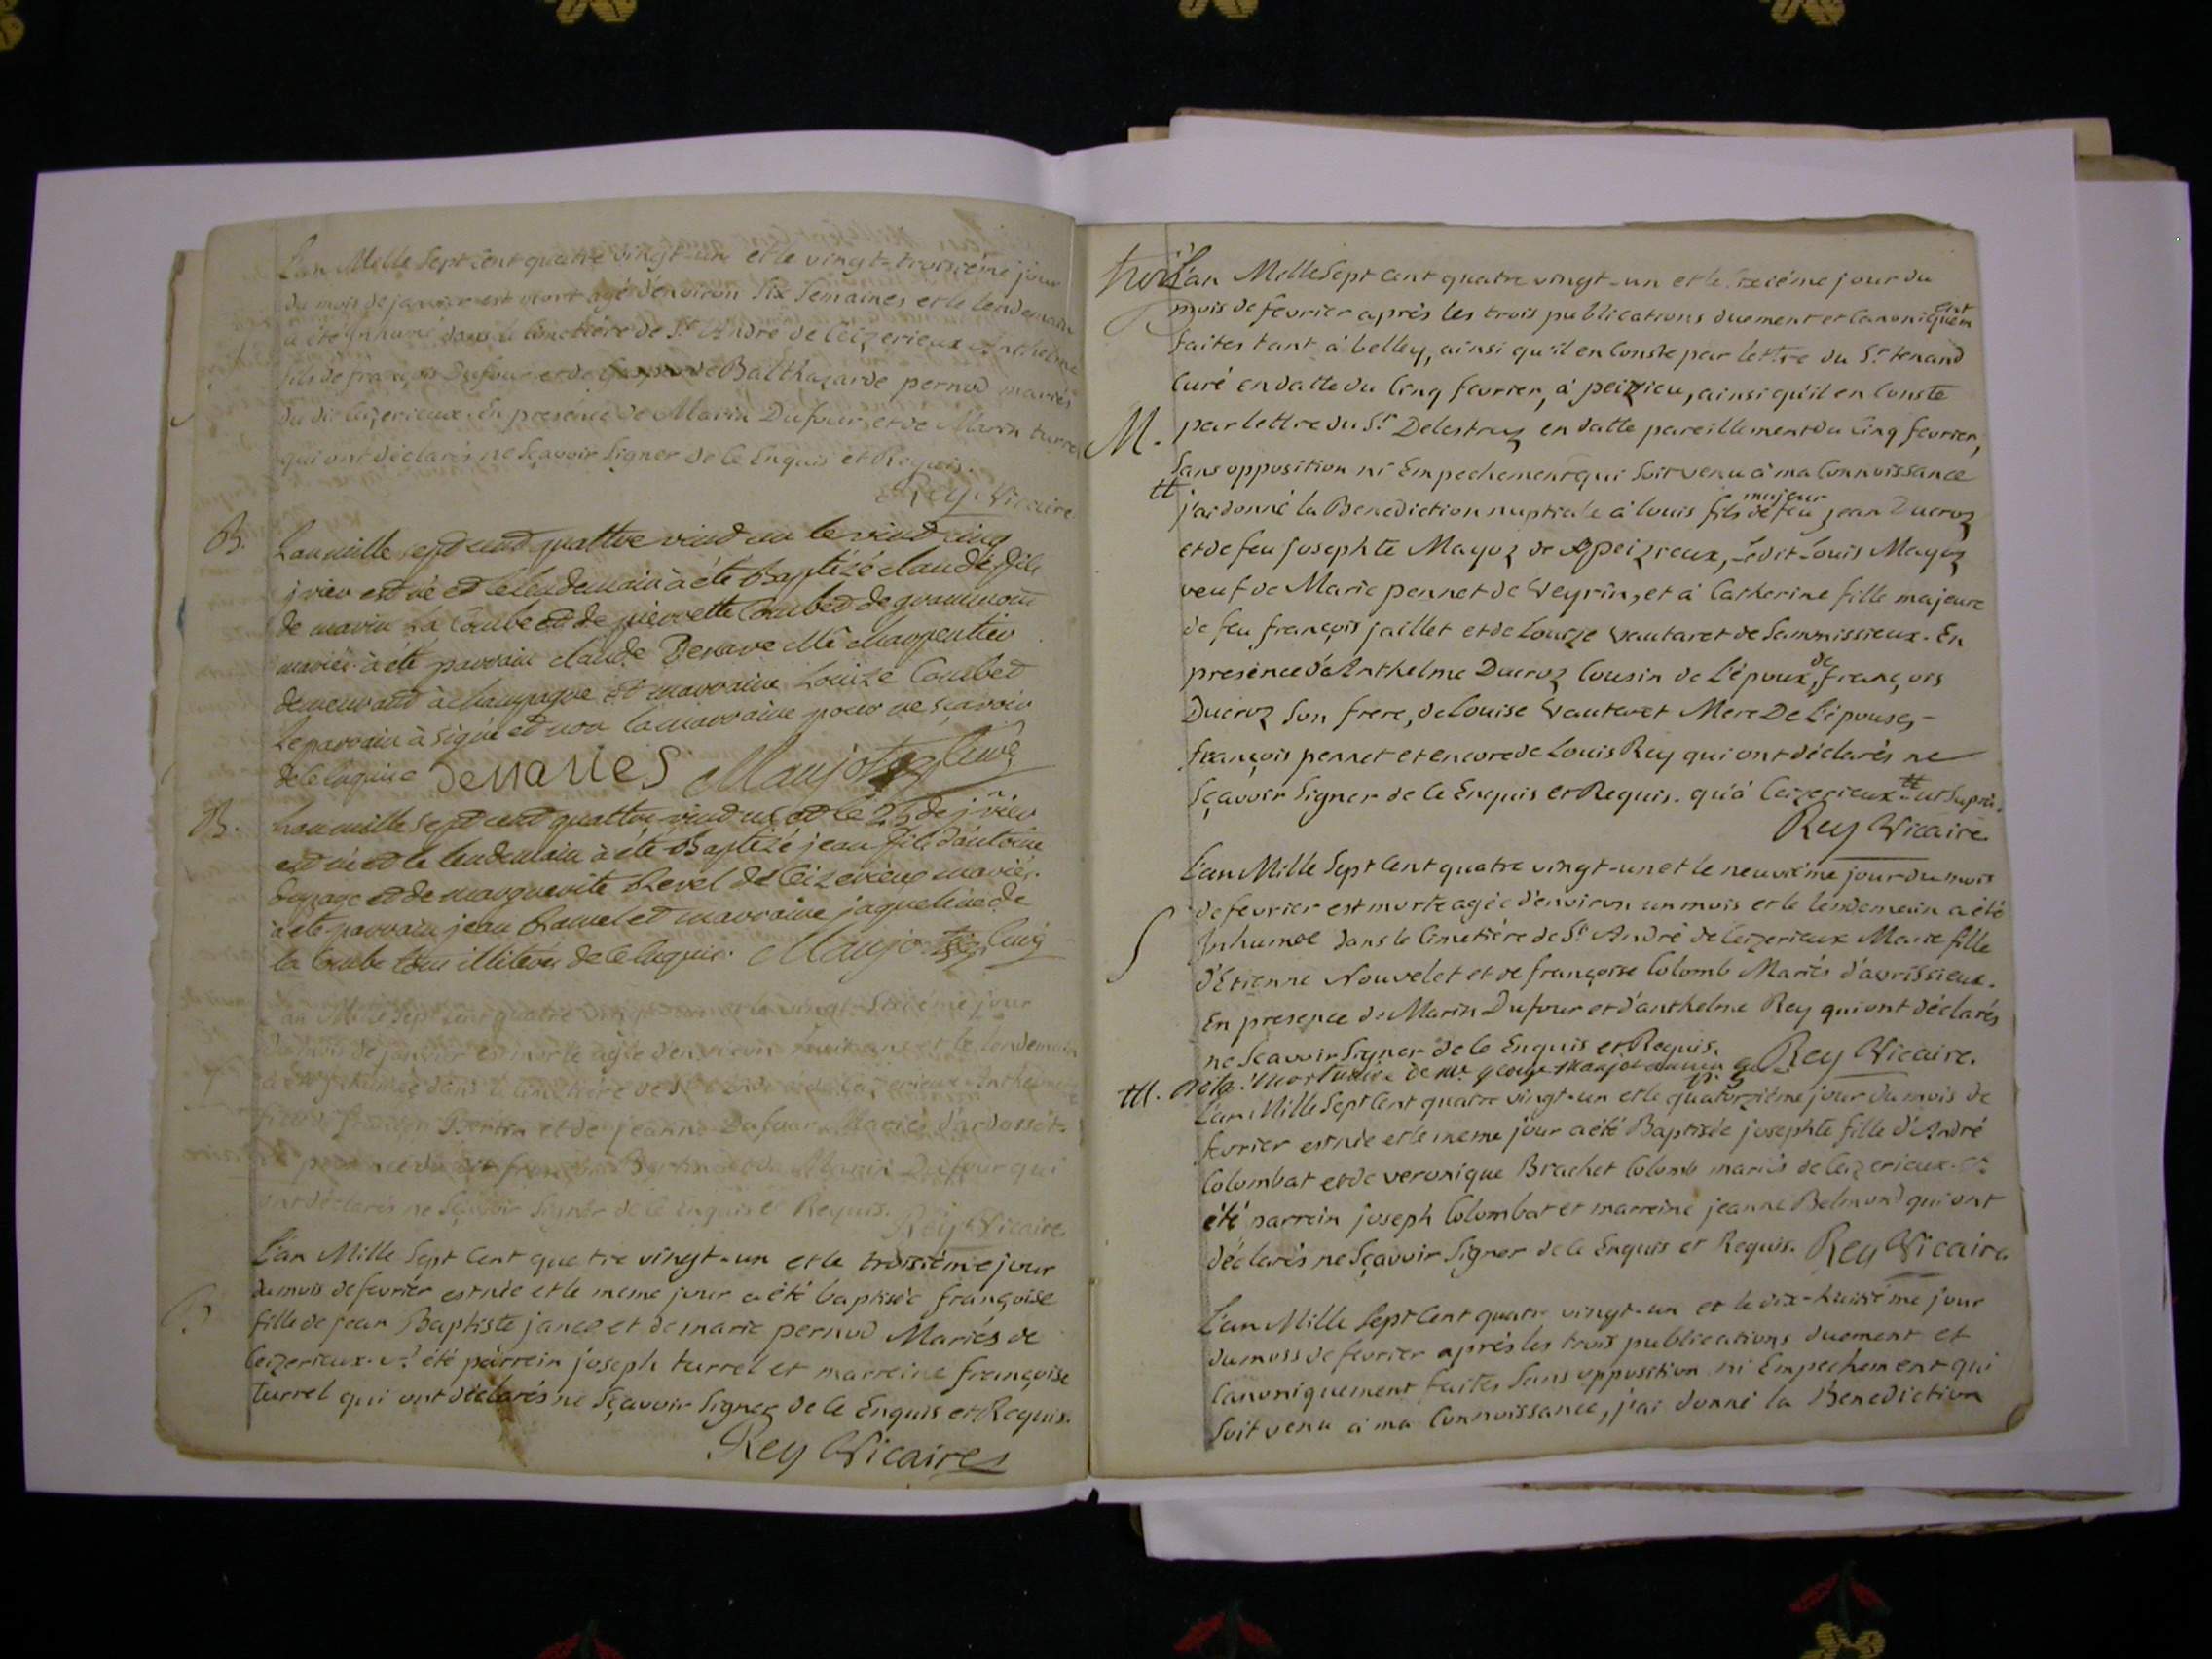 L'an Mille Sept Cent quatre vingt-un et le vingt-troisiéme jour
du mois de janvier est mort agé d'environ Six Semaines et le lendemain
a été Inhumé dans le Cimetiére de St André de Ceizerieux Anthelme
fils de françois Dufour et de Balthazarde pernod mariés
du dit Ceizerieux. En presence de Marin Dufour, et de Marin turrel
qui ont déclarés ne Sçavoir Signer de Ce Enquis et Requis.
Rey Vicaire
B. Lan mille sept cent quattre vind un le vind cinq
jvier est né et le lendemain à été Baptizé claude fils
de marin La Combe et de pierrette Combet de grammont
mariés. à été parrain claude Me charpentier
demeurant à champagne et marraine Louize Combet
Le parrain à signé et non la marraine pour ne sçavoir
de ce enquise Maujot Curé
B. Lan mille sept cent quattre vind un et le 25 de jvier
est né et le lendemain à été Baptizé jean fils d'antoine
et de marguerite Revel de Ceizerieux mariés.
à été parrain jean et marraine jaqueline de
la Combe tous illiterés de ce enquis. Maujot Curé
L'an Mille Sept Cent quatre vingt-un et le vingt-Sixiéme jour
du mois de janvier est morte agée d'environ ans et le lendemain
a été Inhumée dans le Cimetiére de St André de Ceizerieux Anthelmette
fille de Bertin et de jeanne Dufour Mariés d'ardosset.
En presence du dit françois Bertin et de Marin Dufour qui
ont déclarés ne Sçavoir Signer de Ce Enquis et Requis.
Rey Vicaire
L'an Mille Sept Cent quatre vingt-un et le troisiéme jour
du mois de fevrier est née et le meme jour a été baptisée françoise
fille de jean Baptiste jance et de marie pernod Mariés de
Ceizerieux. été parrein joseph turrel et marreine françoise
turrel qui ont déclarés ne Sçavoir Signer de Ce Enquis et Requis.
Rey Vicaire
trois L'an Mille Sept Cent quatre vingt-un et le Sixiéme jour du
mois de fevrier après les trois publications duement et Canoniquement
faites tant à belley, ainsi qu'il en Conste par lettre du Sr tenand
Curé en datte du Cinq fevrier, à peizieu, ainsi qu'il en Conste
M. par lettre du Sr Delestraz en datte pareillement du Cinq fevrier,
Sans opposition ni Empechement qui Soit venu à ma Connoissance
j'ai donné la Benediction nuptiale à louis fils majeur de feu jean Ducroz
et de feu josephte Mayoz de peizieux, Ledit Louis Mayoz
veuf de Marie pennet de Veyrin, et à Catherine fille majeure
de feu françois jaillet et de Louize Vautaret de Sammissieux. En
presence d'Anthelme Ducroz Cousin de L'époux, de françois
Ducroz Son frere, de Louise Vautaret Mere De L'épouse,
françois pennet et encore de Louis Rey qui ont déclarés ne
Sçavoir Signer de Ce Enquis et Requis. qu'à Ceizerieux ut Supra.
Rey Vicaire
L'an Mille Sept Cent quatre vingt-un et le neuviéme jour du mois
de fevrier est morte agée d'environ un mois et le lendemain a été
S Inhumée dans le Cimetiére de St André de Ceizerieux Marie fille
d'Etienne Nouvelet et de françoise Colomb Mariés d'avrissieux.
En presence de Marin Dufour et d'anthelme Rey qui ont déclarés
ne Sçavoir Signer de Ce Enquis et Requis. Rey Vicaire.
nota: Mortuaire de Mr george Maujot
L'an Mille Sept Cent quatre vingt-un et le quatorziéme jour du mois de
fevrier est née et le meme jour a été Baptisée josephte fille d'André
Colombat et de veronique Brachet Colomb mariés de Ceizerieux.
été parrein joseph Colombat et marreine jeanne Belmond qui ont
déclarés ne Sçavoir Signer de Ce Enquis et Requis. Rey Vicaire
L'an Mille Sept Cent quatre vingt-un et le dix-huitiéme jour
du mois de fevrier après les trois publications duement et
Canoniquement faites Sans opposition ni Empechement qui
Soit venu à ma Connoissance, j'ai donné la Benediction